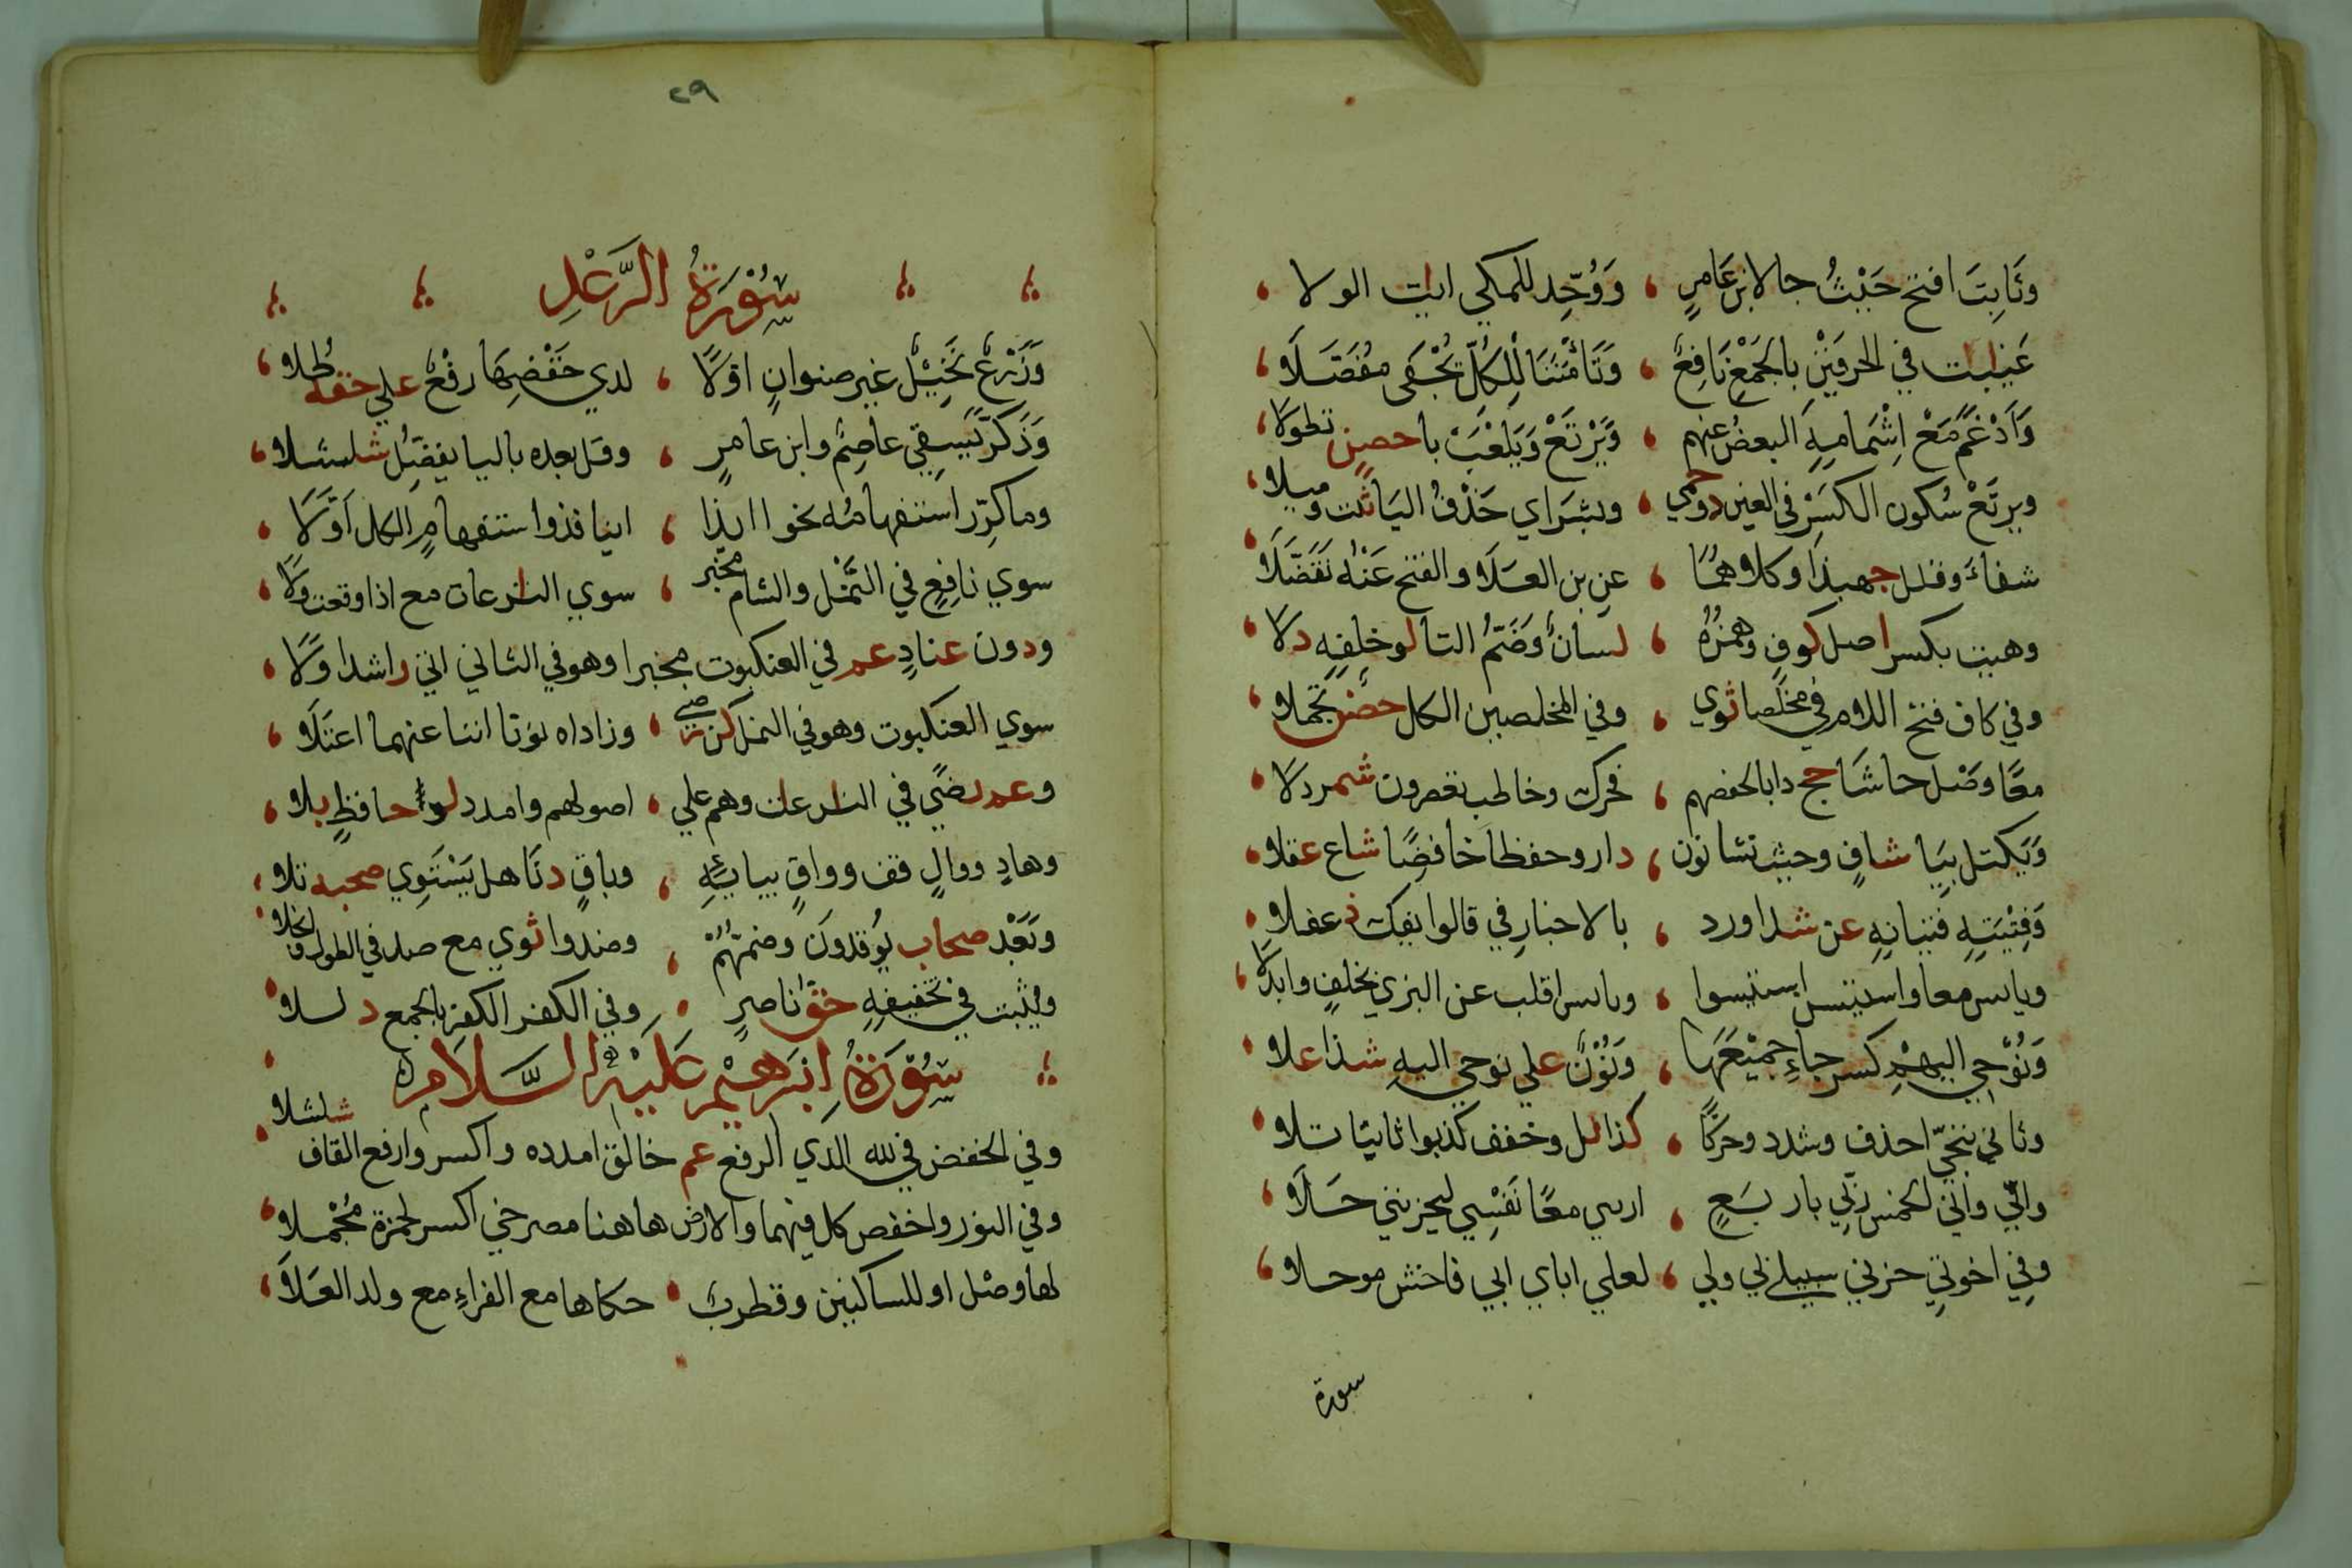 وَيَابتَ افتح حَيْثُ جا لابنِ عَامرٍ ، وَوُحِّد للمكي ايات الولا ،
غَيابات في الحرفَيْنِ بالجَمْعِ نَافِعٌ ، وَتَامَنُنَا لِلكُلّ يُخْفَى مُفَصَّلَا ،
وَاَدْغَمَ مَعْ اِشْمَامِهِ البعضُ عنهم ، وَيَرْتَعْ وَيَلْعَبْ يا حصنٍ تطولا ،
ويرتَعْ سُكون الكسَرْ في العين ذو حمى ، وبشرَاي حَذْفُ اليَا ثبت وميلا ،
شفاءً وقلل جهبذا وكلاهُمَا ، عن بن العَلَا والفتح عَنْهُ تَفَضَّلَا
وهيت بكسر اصل كوفٍ وهمزُهُ ، لسانٌ وَضَمُّ التا لو خلفِهِ دلا ،
وفي كاف فتح اللام في مخلصا ثوي ، وفي المخلصين الكل حصْن تجملا ،
معًا وَصْل حاشَا حج دابا لحفصهم ، فحرك وخاطب تعصرون شمردلا ،
وَيَكتل بِيَا شافٍ وحيث نشا نون ، دار وحفظا خافضًا شاع عقلا ،
وَفِتْيَتِهِ فتيانِهِ عن شذا ورد ، بالاخبارِ في قالوا ايفك دغفلا ،
وياىس معا واستيئس استيئسوا ، وياىسوا اقلب عن البزي بخلفٍ وابدلا ،
وَنُوْحي اليهْمِ كسر حاءِ جميْعَهَا ، وَنُوْنٌ علي نوحي اليهِ شذا علا ،
وثاني ننجيّ احذف وشدد وحركًا ، كذا نل وخفف كذبوا ثابتًا تلا ،
وانّي واني الخمس ربّي باربَعٍ ، اراني معًا نَفْسِي ليحزنني حَلَا ،
وفي اخوتي حزني سبيلي لي ولي ، لعلي اباي ابي فاخش موحلا ،
سورة
٢٩
سُوْرَةُ الرَّعْدِ
وَزَرْعٌ نَخِيْلٌ غير صنوانٍ اوّلًا ، لدي خَفْضِهَا رفْعٌ علي حقه طُلا ،
وَذَكرّ تُسقي عاصِمٌ وابن عامرٍ ، وقل بعده باليا يفضِّل شلشلا ،
وما كرِّر استفهامُه نحو اايذا ، اينا فذوا ستفهامٍ الكل اَوَّلَا ،
سوي نافِعٍ في النَّمْل والشام مخبر ، سوي النازعات مع اذا وقعت ولا ،
ودون عنادٍ عم في العنكبوت مخبرا وهو في الثاني اتي راشدا ولا ،
سوي العنكبوت وهو في النمل كن رضي ، وزاداه نونا اننا عنهما اعتلَا ،
وعم رضًي في النازعات وهم علي ، اصولهم وامدد لوا حافظٍ بلا ،
وهادٍ ووالٍ قف وواقٍ بيائِهِ ، وباقٍ دنَا هل يَسْتَوِي صحبه تلا ،
وبَعْد صحاب يُوقدونَ وضمّهُمْ ، وصدوا ثوي مع صد في الطول وانجلا ،
ويُثبت في تخفيفِهِ حَقّ ناصرٍ ، وفي الكفر الكفر بالجمع دللا ،
سُوْرَةُ اِبْرَهيْمِ عَلَيْهِ السَّلَام
وفي الخفض في لله الذي الرفع عم خالق امدده واكسر وارفع القاف شلشلا
وفي النور واخفض كل فيها والارض هاهنا مصرخي اكسر لحمزة مُجْملا ،
لها وصْل او للساكنين وقطربٌ ، حكاها مع الفراءِ مع ولد العَلَا ،